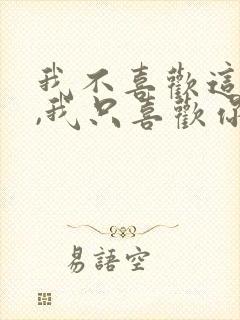 我不喜歡這
,我只喜歡你
易語空